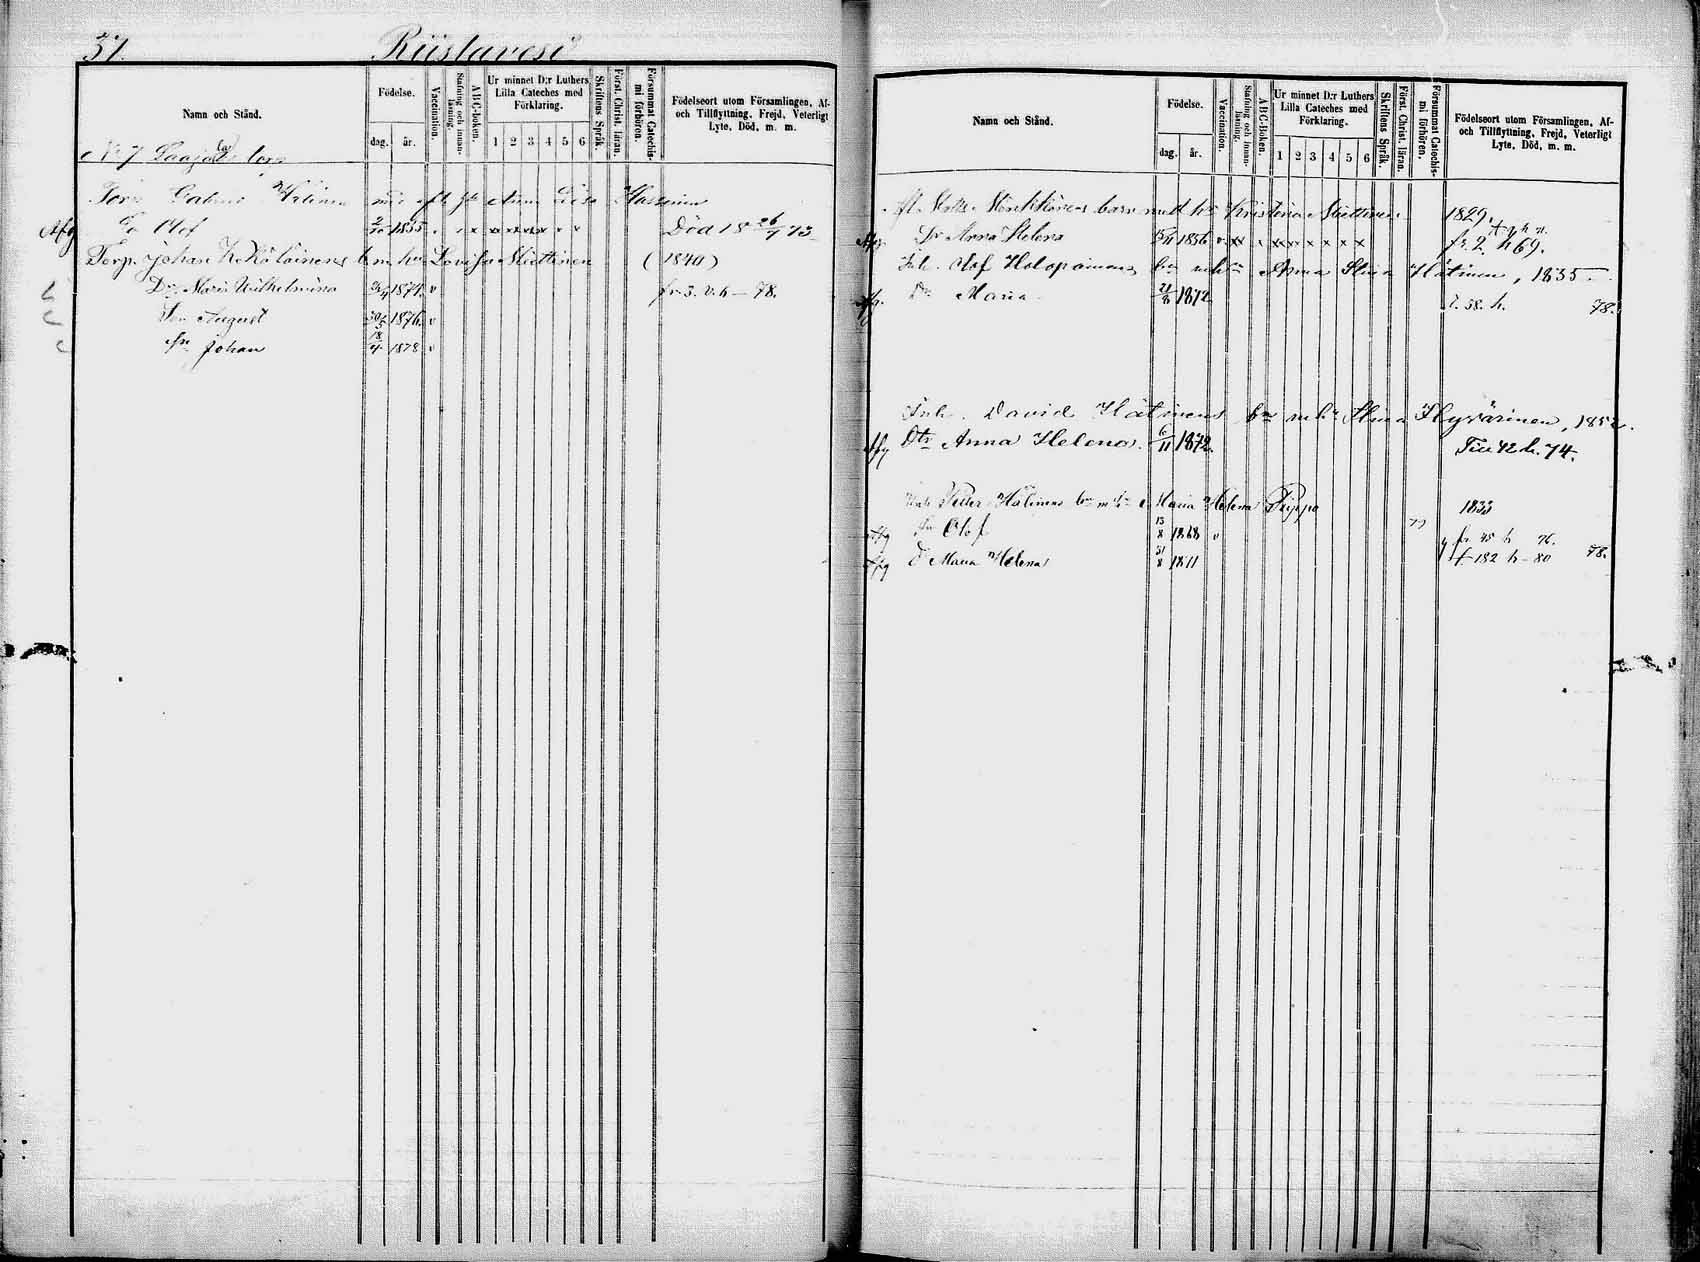 37. Riistavesi
Namn och Stånd.
Födelse.
dag. år.
Vaccination.
Stafning och innanläsning.
ABC-boken.
Ur minnet D:r Luthers Lilla Cateches med Förklaring.
1 2 3 4 5 6
Skriftens Språk.
Först. Christ. läran.
Försummat Catechismi förhören.
Födelseort utom Församlingen, Af- och Tillflyttning, Frejd, Veterligt Lyte, Död, m. m.
No 7 torp
Hassinen
Afg Olof 1855 Död 18 26/7 73
Torp. Johan K. Kölöinens bn m. hu Lovisa Miettinen (1840)
Dr Maria Wilhelmina 1874 v fr. 3. v. h – 78.
Sn August 30/5 1876 v
Sn Johan 18/4 1878 v
Namn och Stånd.
Födelse.
dag. år.
Vaccination.
Stafning och innanläsning.
ABC-Boken.
Ur minnet D:r Luthers Lilla Cateches med Förklaring.
1 2 3 4 5 6
Skriftens Språk.
Först. Christ. läran.
Försummat Catechismi förhören.
Födelseort utom Församlingen, Af- och Tillflyttning, Frejd, Veterligt Lyte, Död, m. m.
barn med hu Kristina Miettinen 1829
Dr Anna Helena 1856 v fr. 2 h 69.
Inh. Olof Holopainens bn m hu Anna Stina Hätinen, 1835
Afg. Dr Maria 21/8 1872 t. 58. h. 78.
Inh. David Hätinens bn m hu Stina Hyvärinen, 1852.
Afg Dtr Anna Helena 6/11 1872. Till 42 h. 74.
Inh Petter Hätinens bn m hu Maria Helena Piippo 1833
Afg Sn Olof 15/8 1868 v fr 45 h 76.
Afg Dr Maria Helena 31/8 1871 f 182 h – 80 78.